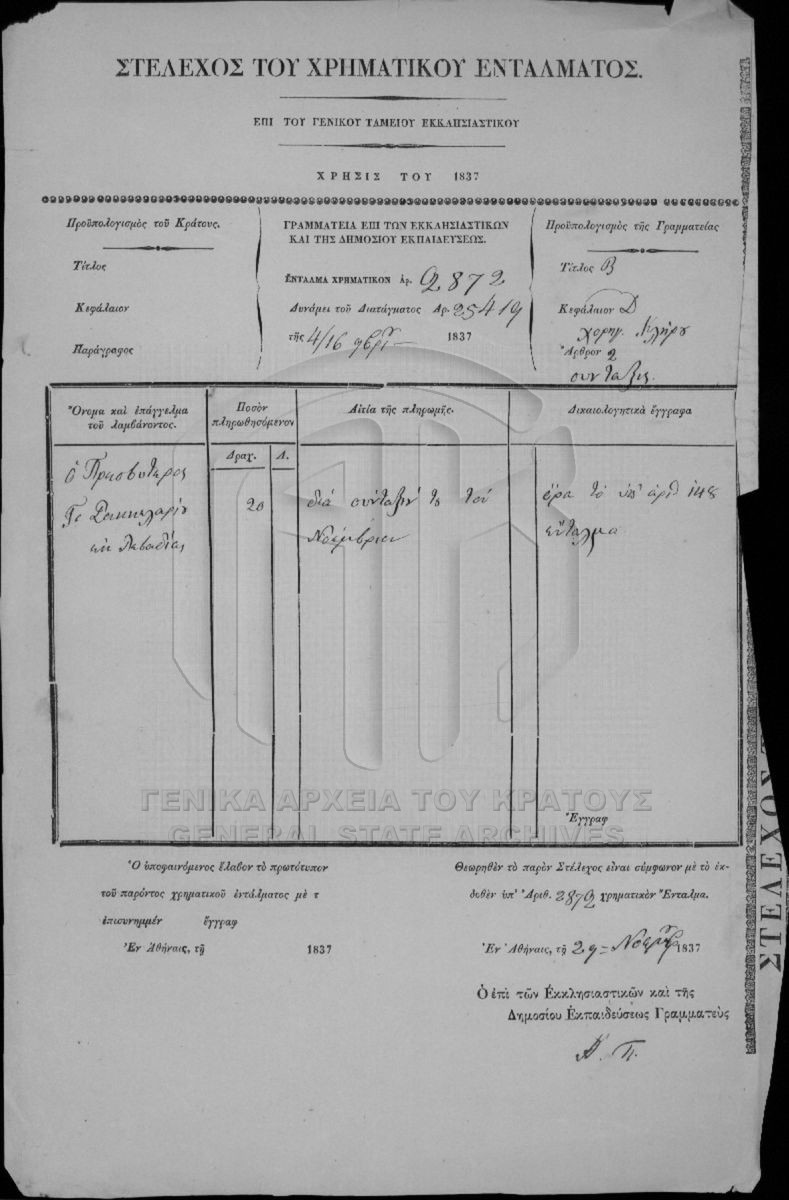 ΣΤΕΛΕΧΟΣ ΤΟΥ ΧΡΗΜΑΤΙΚΟΥ ΕΝΤΑΛΜΑΤΟΣ.
ΕΠΙ ΤΟΥ ΓΕΝΙΚΟΥ ΤΑΜΕΙΟΥ ΕΚΚΛΗΣΙΑΣΤΙΚΟΥ
ΧΡΗΣΙΣ ΤΟΥ 1837
Προϋπολογισμὸς τοῦ Κράτους.
Τίτλος
Κεφάλαιον
Παράγραφος
ΓΡΑΜΜΑΤΕΙΑ ΕΠΙ ΤΩΝ ΕΚΚΛΗΣΙΑΣΤΙΚΩΝ
ΚΑΙ ΤΗΣ ΔΗΜΟΣΙΟΥ ΕΚΠΑΙΔΕΥΣΕΩΣ.
ΕΝΤΑΛΜΑ ΧΡΗΜΑΤΙΚΟΝ Ἀρ. 2872
Δυνάμει τοῦ Διατάγματος Ἀρ. 25419
τῆς 4/16 9βρί 1837
Προϋπολογισμὸς τῆς Γραμματείας
Τίτλος Β
Κεφάλαιον Δ
χορηγ. Κλήρου
Ἄρθρον 2
συντάξεις.
Ὄνομα καὶ ἐπάγγελμα
τοῦ λαμβάνοντος.
Ποσὸν
πληρωθησόμενον
Δραχ. Λ.
Αἰτία τῆς πληρωμῆς.
Δικαιολογητικὰ ἔγγραφα
ὁ Πρεσβύτερος
Γε Σακκελαρίου
ἐκ Λεβαδίας
20
διὰ σύνταξίν του τοῦ
Νοεμβρίου
ὅρα τὸ ὑπ' ἀριθ 148
ἔνταλμα
Ἔγγραφ
ΓΕΝΙΚΑ ΑΡΧΕΙΑ ΤΟΥ ΚΡΑΤΟΥΣ
GENERAL STATE ARCHIVES
Ὁ ὑποφαινόμενος ἔλαβον τὸ πρωτότυπον
τοῦ παρόντος χρηματικοῦ ἐντάλματος μὲ τ
ἐπισυνημμέν ἔγγραφ
Ἐν Ἀθήναις, τῇ 1837
Θεωρηθὲν τὸ παρὸν Στέλεχος εἶναι σύμφωνον μὲ τὸ ἐκ-
δοθὲν ὑπ' Ἀριθ. 2872 χρηματικὸν Ἔνταλμα.
Ἐν Ἀθήναις, τῇ 29 Νοεμβρ 1837
Ὁ ἐπὶ τῶν Ἐκκλησιαστικῶν καὶ τῆς
Δημοσίου Ἐκπαιδεύσεως Γραμματεὺς
Α. Π.
ΣΤΕΛΕΧΟΣ